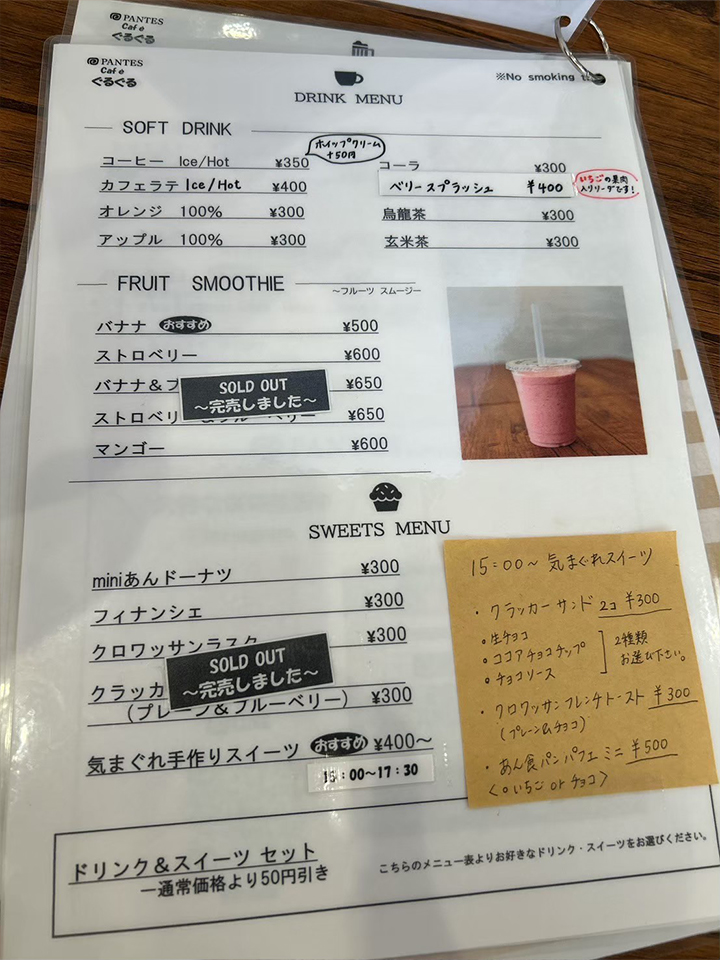 PANTES
Cafe
ぐるぐる
PANTES
Cafe
ぐるぐる
※No smoking
DRINK MENU
SOFT DRINK
ホイップクリーム
+50円
コーヒー Ice/Hot ¥350
カフェラテ Ice/Hot ¥400
オレンジ 100% ¥300
アップル 100% ¥300
コーラ ¥300
ベリースプラッシュ ¥400
いちごの果肉
入りソーダです!
烏龍茶 ¥300
玄米茶 ¥300
FRUIT SMOOTHIE
~フルーツ スムージー
バナナ おすすめ ¥500
ストロベリー ¥600
バナナ&ブ ¥650
SOLD OUT
~完売しました~
ストロベリー ブルーベリー ¥650
マンゴー ¥600
SWEETS MENU
miniあんドーナツ ¥300
フィナンシェ ¥300
クロワッサンラスク ¥300
SOLD OUT
~完売しました~
クラッカ ¥300
(プレーン&ブルーベリー)
気まぐれ手作りスイーツ おすすめ ¥400~
15:00~17:30
15:00~ 気まぐれスイーツ
・クラッカーサンド 2コ ¥300
◦生チョコ
◦ココアチョコチップ
◦チョコソース
2種類
お選び下さい。
・クロワッサンフレンチトースト ¥300
(プレーン&チョコ)
・あん食パンパフェミニ ¥500
<◦いちご or チョコ>
ドリンク&スイーツ セット
―通常価格より50円引き
こちらのメニュー表よりお好きなドリンク・スイーツをお選びください。